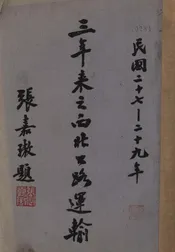 民國二十七—二十九年
三年来之西北公路運輸
張嘉璈題